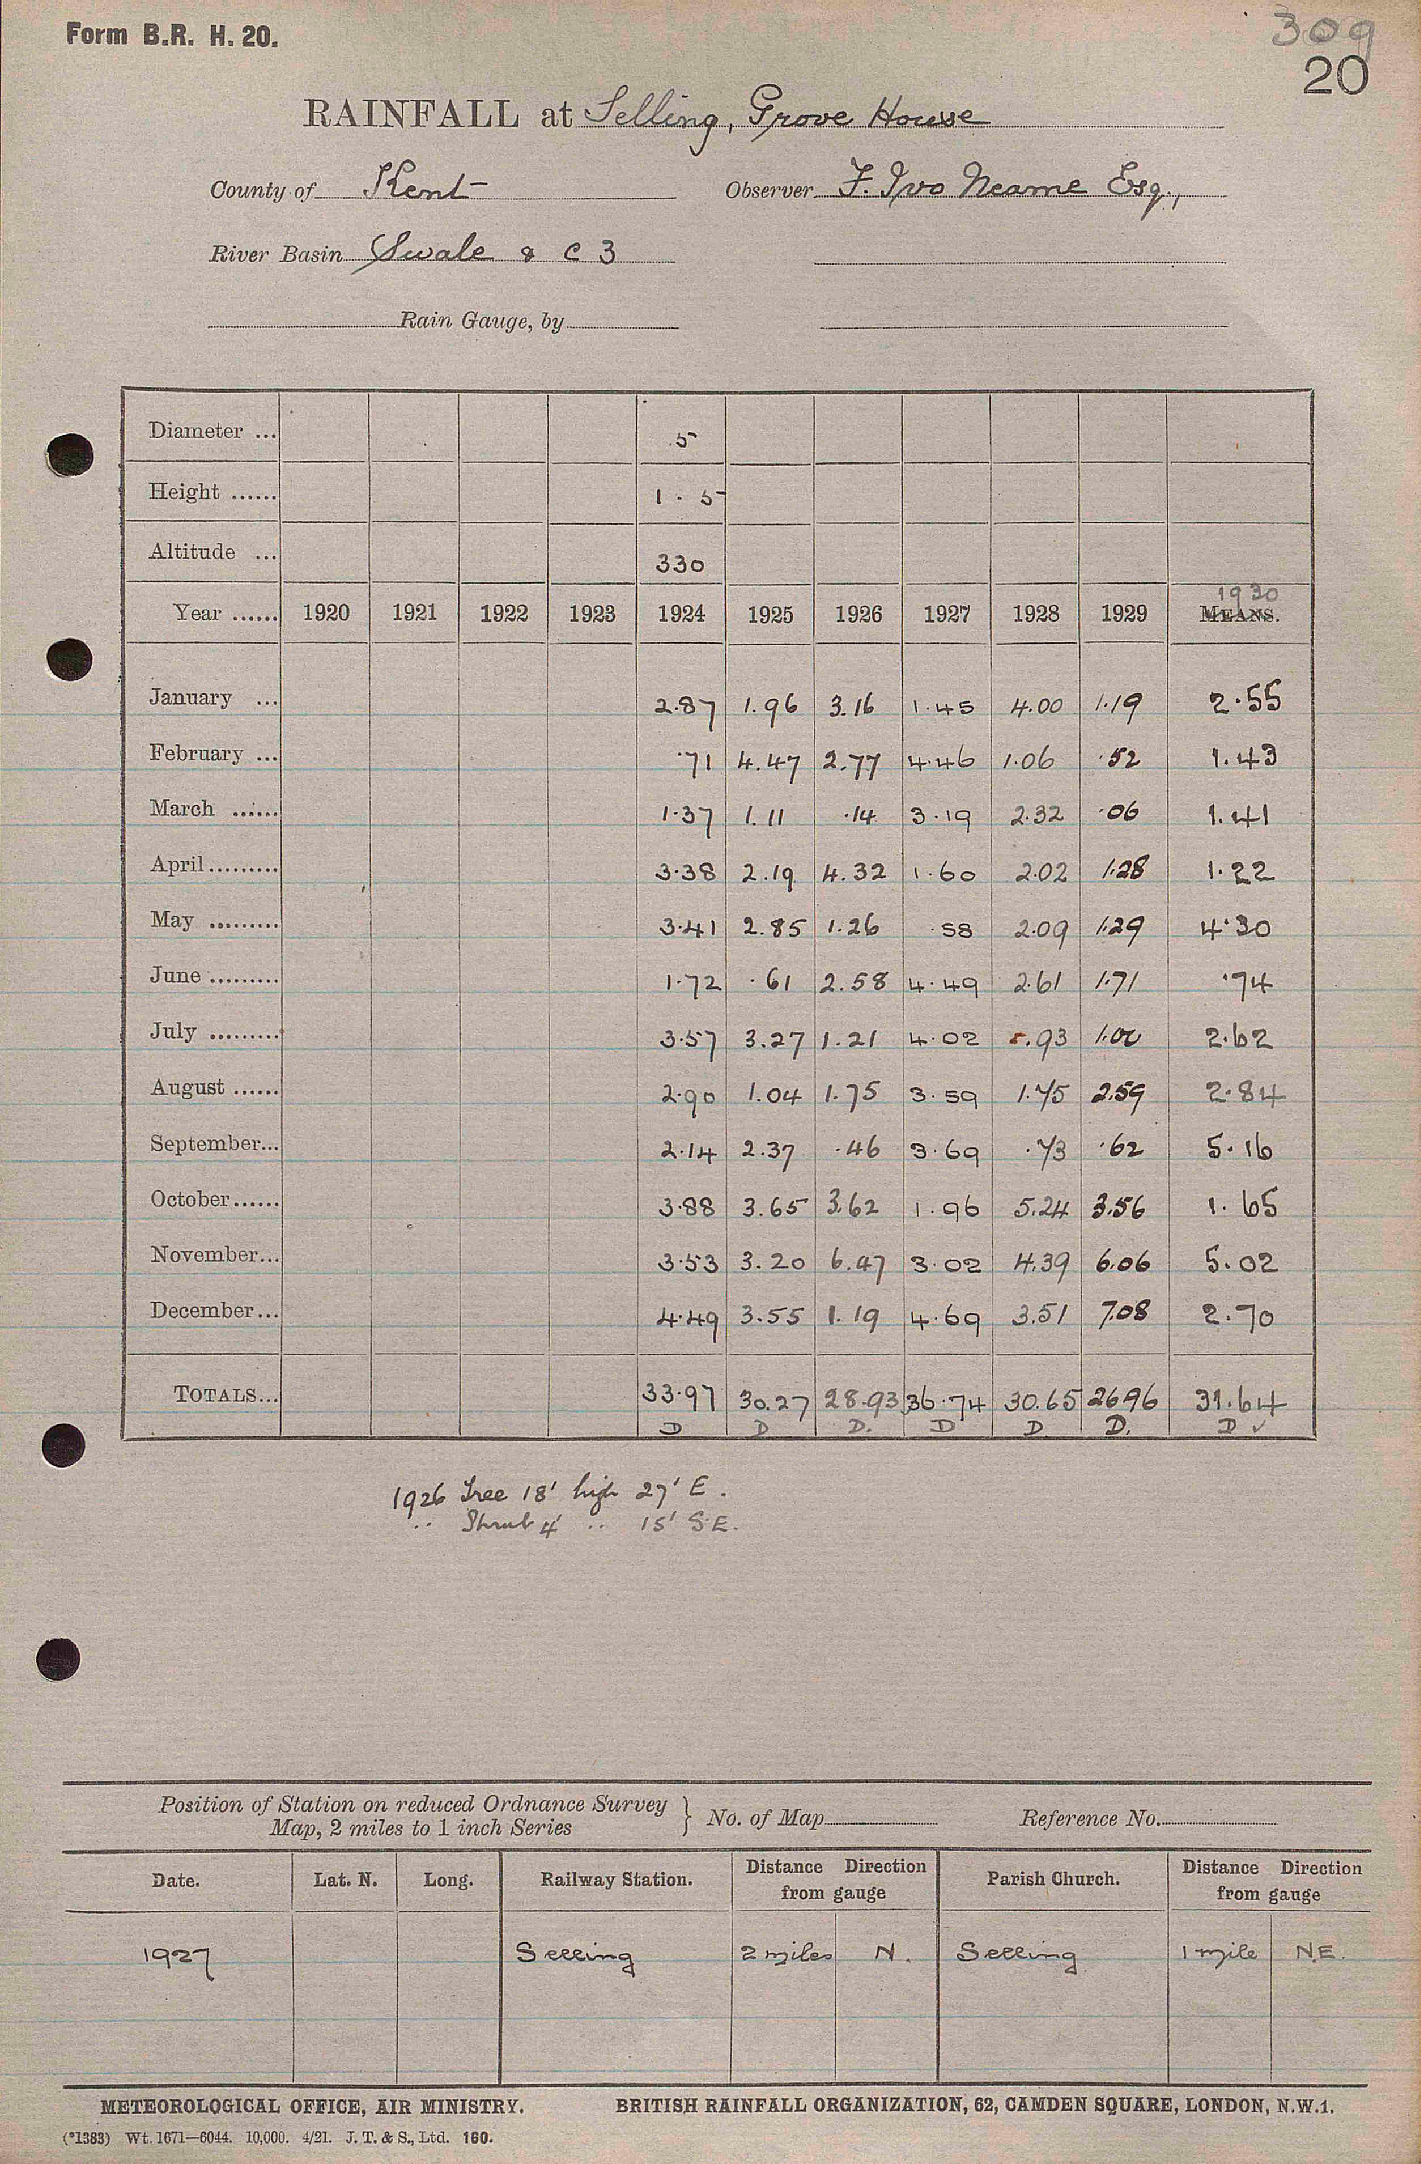 Form B.R. H. 20.
309
20
RAINFALL at Selling, Grove House
County of Kent Observer F. Ivo Neame Esq.,
River Basin Swale & C 3
Rain Gauge, by
Diameter ... 5
Height ...... 1 . 5
Altitude ... 330
1930
Year ...... 1920 1921 1922 1923 1924 1925 1926 1927 1928 1929 MEANS.
January ... 2.87 1.96 3.16 1.45 4.00 1.19 2.55
February ... .71 4.47 2.77 4.46 1.06 .52 1.43
March ...... 1.37 1.11 .14 3.19 2.32 .06 1.41
April ......... 3.38 2.19 4.32 1.60 2.02 1.28 1.22
May ......... 3.41 2.85 1.26 .58 2.09 1.29 4.30
June ......... 1.72 .61 2.58 4.49 2.61 1.71 .74
July ......... 3.57 3.27 1.21 4.02 .93 1.00 2.62
August ...... 2.90 1.04 1.75 3.59 1.75 2.59 2.84
September... 2.14 2.37 .46 3.69 .73 .62 5.16
October ...... 3.88 3.65 3.62 1.96 5.24 3.56 1.65
November... 3.53 3.20 6.47 3.02 4.39 6.06 5.02
December... 4.49 3.55 1.19 4.69 3.51 7.08 2.70
TOTALS... 33.97 30.27 28.93 36.74 30.65 26.96 31.64
D D D. D D D. D ✓
1926 Tree 18' high 27' E.
" Shrub 4' " 15' S.E.
Position of Station on reduced Ordnance Survey
Map, 2 miles to 1 inch Series } No. of Map Reference No.
Date. Lat. N. Long. Railway Station. Distance Direction from gauge Parish Church. Distance Direction from gauge
1927 Selling 2 miles N. Selling 1 mile NE.
METEOROLOGICAL OFFICE, AIR MINISTRY. BRITISH RAINFALL ORGANIZATION, 62, CAMDEN SQUARE, LONDON, N.W.1.
(*1383) Wt. 1671—6044. 10,000. 4/21. J. T. & S., Ltd. 160.